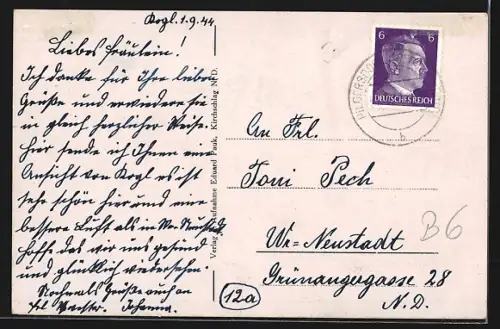 Kogl. 1.9.44
Liebes Fräulein!
Ich danke für Ihre lieben
Grüße und erwiedere sie
in gleich herzlicher Weise.
Hier sende ich Ihnen eine
Ansicht von Kogl es ist
sehr schön hier und eine
bessere Luft als in Wr. Neustadt
hoffe das wir uns gesund
und glücklich wiedersehen.
Nochmals Grüße auch an
Frl. Johanna.
Verlag Aufnahme Eduard Pauk, Kirchschlag N.D.
6 6
DEUTSCHES REICH
b
An Frl.
Toni Pech
Wr-Neustadt
Grünangergasse 28
N.D.
12a
B6